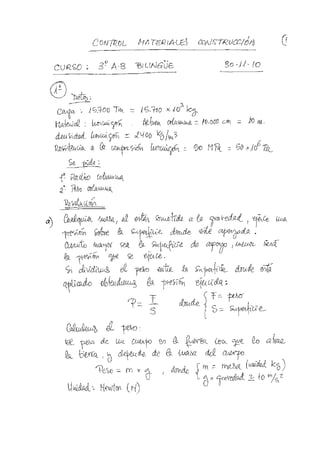 CONTROL MATERIALES CONSTRUCCIÓN 1
CURSO: 3º A-B BILINGÜE 30-11-10
1º
Datos:
Carga: 15.700 Tm = 15.700 x 10³ kg
Material: hormigón. Altura columna = 10.000 cm = 10 m.
densidad hormigón = 2400 kg/m³
Resistencia a la compresión hormigón: 50 MPa = 50 x 10⁶ Pa
Se pide:
1º Radio columna
2º Peso columna
Resolución
a) Cualquier masa, al estar sometida a la gravedad, ejerce una
presión sobre la superficie donde esté apoyada.
Cuanto mayor sea la superficie de apoyo, menor será
la presión que se ejerce.
Si dividimos el peso entre la superficie donde está
aplicado obtendremos la presión ejercida:
P = F/S donde { F = peso
S = Superficie
Calculamos el peso:
El peso de un cuerpo es la fuerza con que lo atrae
la tierra, y depende de la masa del cuerpo
Peso = m x g, donde { m = masa (unidad kg)
g = gravedad ≃ 10 m/s²
Unidad: Newton (N)